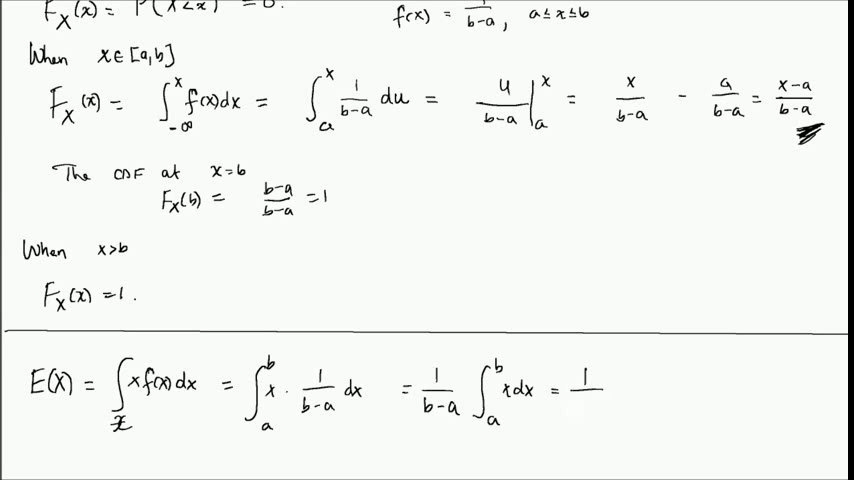 F_X(x) = P(X<x) = 0. f(x) = 1/(b-a), a≤x≤b
When x∈[a,b]
F_X(x) = ∫_{-∞}^{x} f(x)dx = ∫_{a}^{x} 1/(b-a) du = u/(b-a) |_{a}^{x} = x/(b-a) - a/(b-a) = (x-a)/(b-a)
The CDF at x=b
F_X(b) = (b-a)/(b-a) = 1
When x>b
F_X(x) = 1.
E(X) = ∫_{x} x f(x) dx = ∫_{a}^{b} x · 1/(b-a) dx = 1/(b-a) ∫_{a}^{b} x dx = 1/